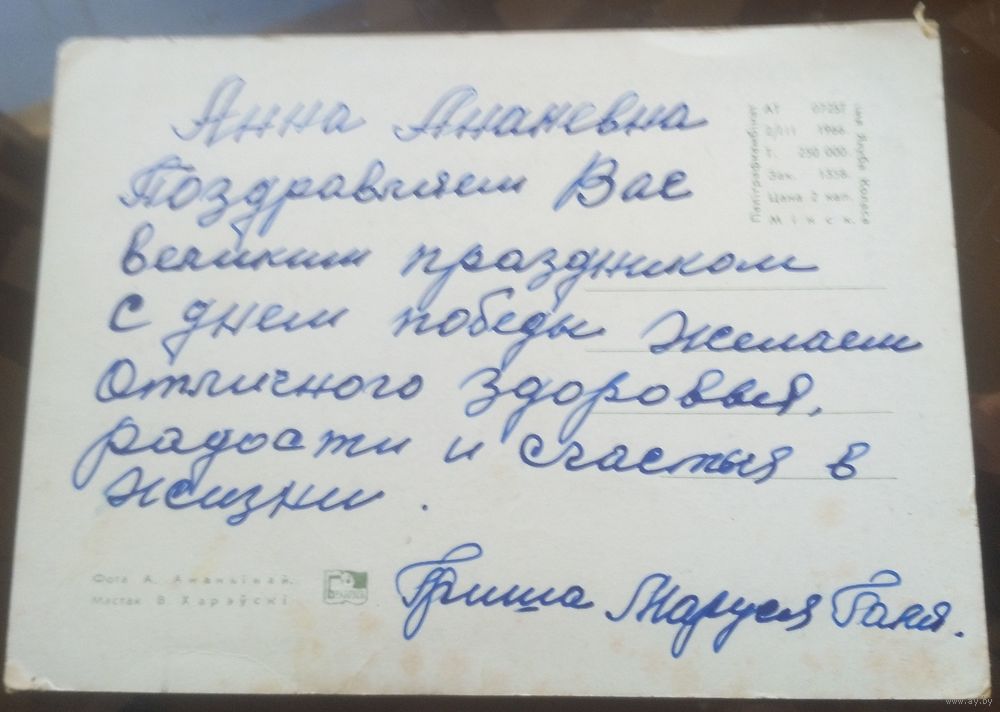 Анна Ананевна
Поздравляем Вас
великим праздником
с днем победы Желаем
Отличного здоровья,
радости и счастья в
жизни.
Гриша Маруся Ганя.
Паліграфкамбінат
АТ 07257
2/III 1966
Т. 250 000.
Зак. 1358.
Цана 2 кап.
Мінск.
імя Якуба Коласа
Фота А. Ананьінай.
Мастак В. Харэўскі
www.ay.by